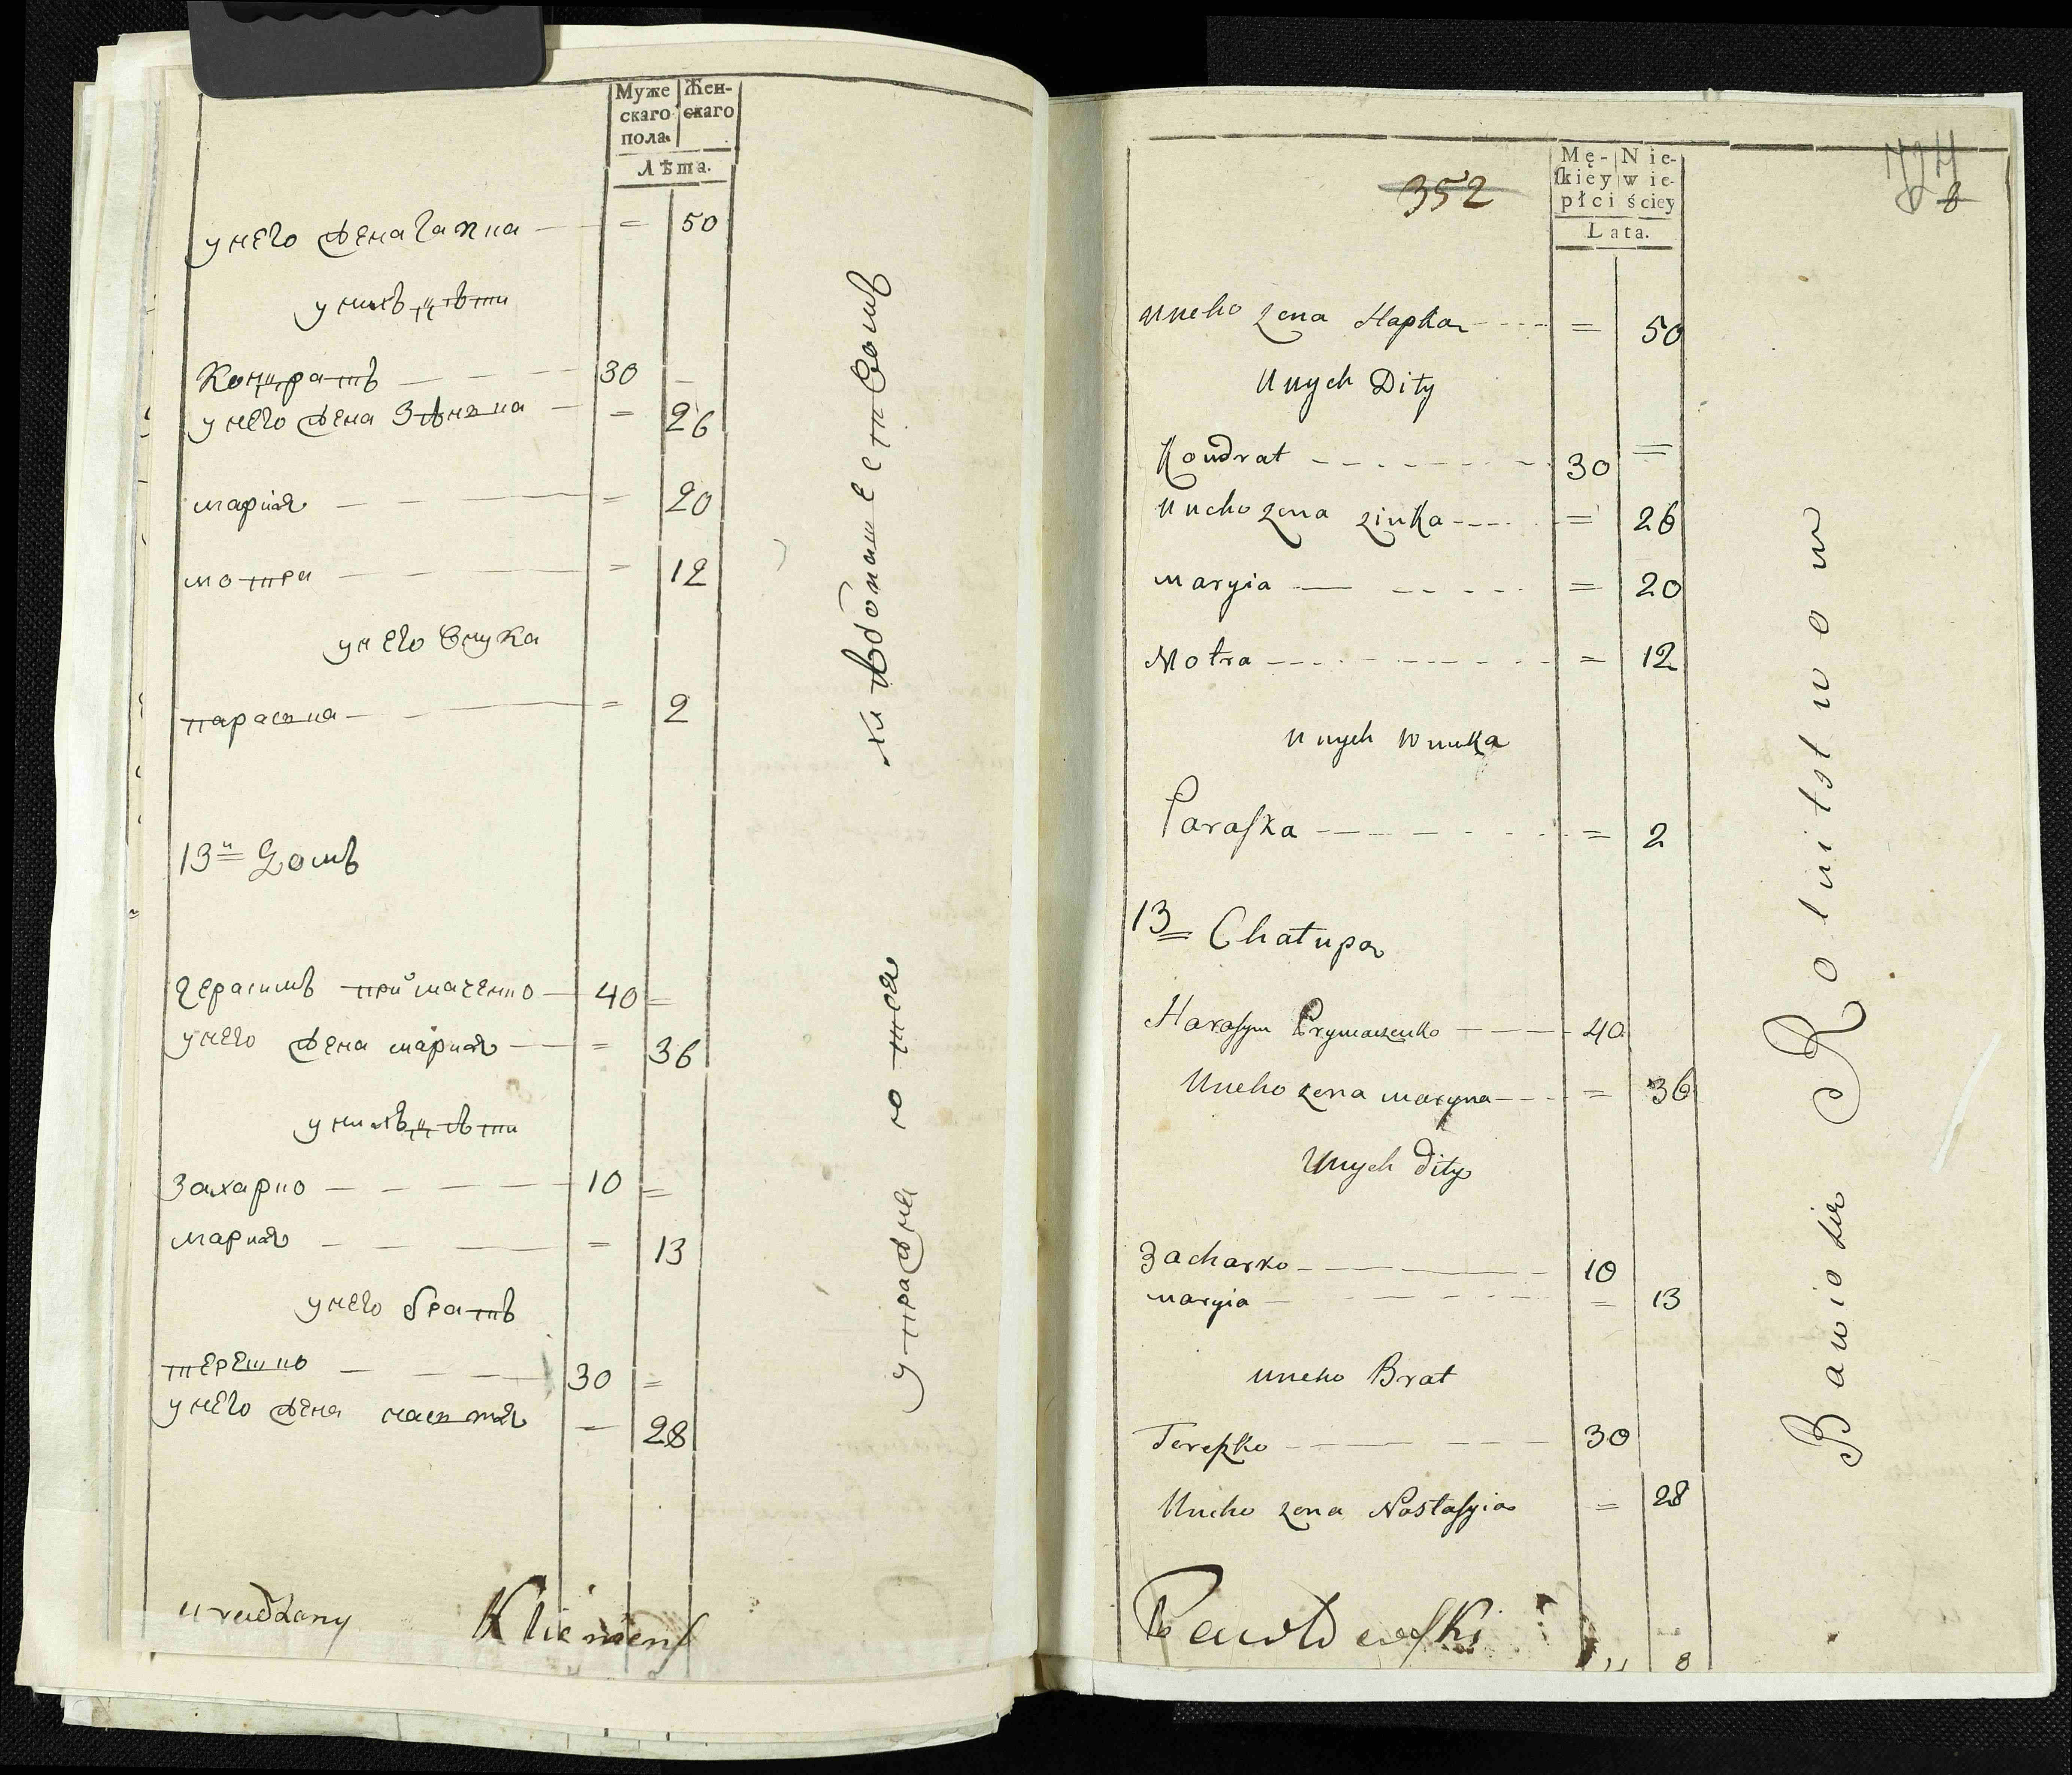 Муже
скаго
пола.
Жен-
скаго
Лѣта.
унего жена гапка — = 50
унихъ дѣти
Кондратъ — — — 30 —
унего жена Зѣнька — = 26
мария — — — = 20
мотра — — = 12
унего внука
параска — — — = 2
13й домъ
герасимъ приймаченко — 40 =
унего жена мария — = 36
унихъ дѣти
Захарко — — — 10 =
мария — — — = 13
унего братъ
терешко — — — 30 =
унего жена настя — 28
упражнаютса хлѣбопашествомъ
urodzony Kliemens
352
Mę-
skiey
płci
Nie-
wie-
ściey
Lata.
8
Uneho zena Hapka - - - = 50
Unych Dity
Kondrat - - - - 30 =
Uneho zona zinka - - - = 26
maryia — - - - = 20
Motra - - - - = 12
Unych Wnuka
Paraska - - - - = 2
13= Chałupa
Harasym Prymaczenko — — — 40
Uneho zena maryna — - - = 36
Unych Dity
Zacharko - — — — 10
maryia — - - - = 13
uneho Brat
Tereszko - — — — 30
Uneho zena Nastasyia = 28
Bawio sie Rolnitstwom